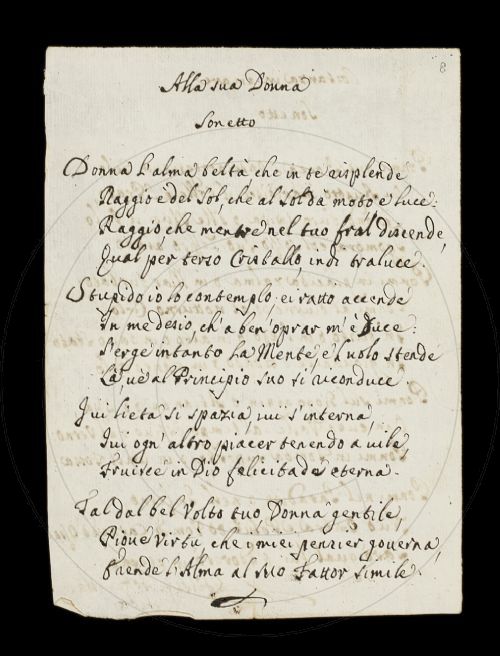 8
Alla sua Donna
Sonetto
Donna l'alma beltà che in te risplende
Raggio è del Sol, che al Sol dà moto e luce:
Raggio, che mentre nel tuo fral discende,
Qual per terso Cristallo, indi traluce.
Stupido io lo contemplo; ei ratto accende
In me desio, ch'a ben oprar m'è Duce:
S'erge intanto la Mente, e 'l volo stende
Là, 've al Principio suo si riconduce.
Ivi lieta si spazia, ivi s'interna,
Ivi ogn'altro piacer tenendo a vile,
Fruisce in Dio felicitade eterna.
Tal dal bel Volto tuo, Donna gentile,
Piove virtù che i miei pensier governa,
E rende l'Alma al suo Fattor simile.